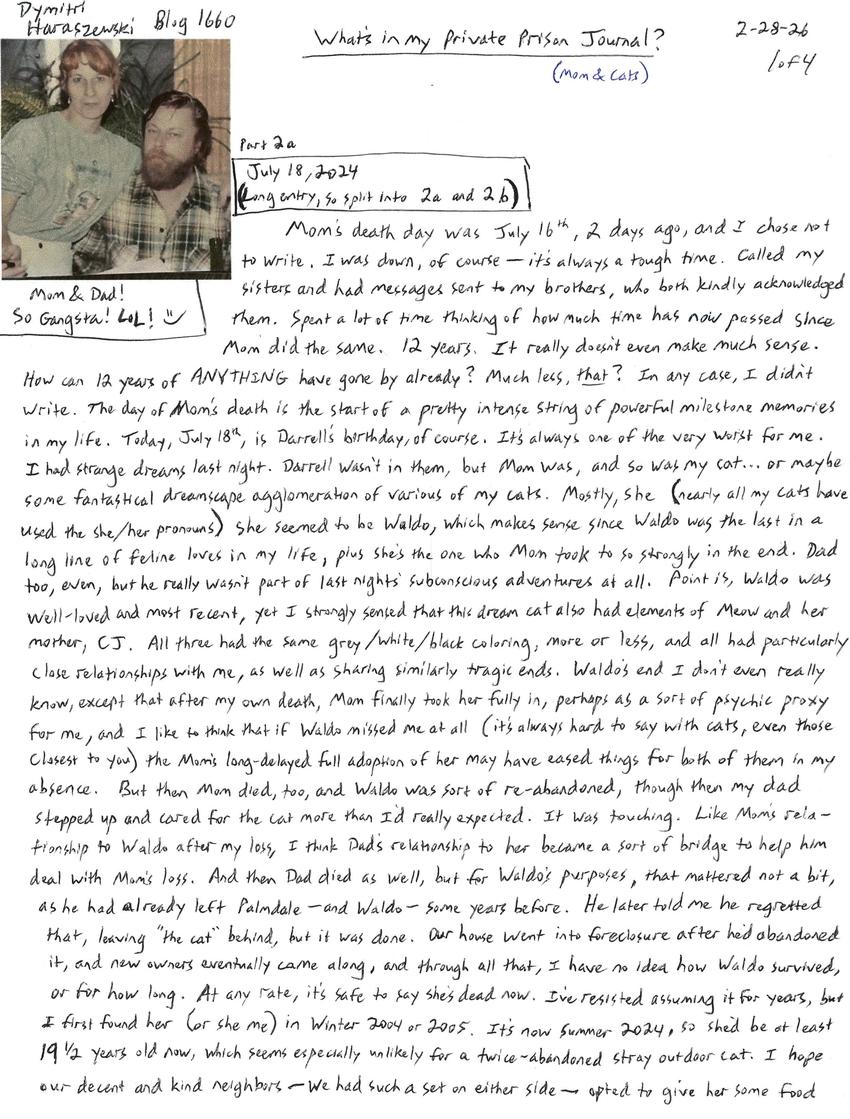 Dymitri
Haraszewski Blog 1660
What's in my Private Prison Journal?
(Mom & Cats)
2-28-26
1 of 4
Part 2a
July 18, 2024
(Long entry, so split into 2a and 2b)
Mom & Dad!
So Gangsta! LOL!
Mom's death day was July 16th, 2 days ago, and I chose not
to write. I was down, of course — it's always a tough time. Called my
sisters and had messages sent to my brothers, who both kindly acknowledged
them. Spent a lot of time thinking of how much time has now passed since
Mom did the same. 12 years. It really doesn't even make much sense.
How can 12 years of ANYTHING have gone by already? Much less, that? In any case, I didn't
write. The day of Mom's death is the start of a pretty intense string of powerful milestone memories
in my life. Today, July 18th, is Darrell's birthday, of course. It's always one of the very worst for me.
I had strange dreams last night. Darrell wasn't in them, but Mom was, and so was my cat... or maybe
some fantastical dreamscape agglomeration of various of my cats. Mostly, she (nearly all my cats have
used the she/her pronouns) she seemed to be Waldo, which makes sense since Waldo was the last in a
long line of feline loves in my life, plus she's the one who Mom took to so strongly in the end. Dad
too, even, but he really wasn't part of last nights' subconscious adventures at all. Point is, Waldo was
well-loved and most recent, yet I strongly sensed that this dream cat also had elements of Meow and her
mother, CJ. All three had the same grey/white/black coloring, more or less, and all had particularly
close relationships with me, as well as sharing similarly tragic ends. Waldo's end I don't even really
know, except that after my own death, Mom finally took her fully in, perhaps as a sort of psychic proxy
for me, and I like to think that if Waldo missed me at all (it's always hard to say with cats, even those
closest to you) the Mom's long-delayed full adoption of her may have eased things for both of them in my
absence. But then Mom died, too, and Waldo was sort of re-abandoned, though then my dad
stepped up and cared for the cat more than I'd really expected. It was touching. Like Mom's rela-
tionship to Waldo after my loss, I think Dad's relationship to her became a sort of bridge to help him
deal with Mom's loss. And then Dad died as well, but for Waldo's purposes, that mattered not a bit,
as he had already left Palmdale — and Waldo — some years before. He later told me he regretted
that, leaving "the cat" behind, but it was done. Our house went into foreclosure after he'd abandoned
it, and new owners eventually came along, and through all that, I have no idea how Waldo survived,
or for how long. At any rate, it's safe to say she's dead now. I've resisted assuming it for years, but
I first found her (or she me) in Winter 2004 or 2005. It's now summer 2024, so she'd be at least
19 1/2 years old now, which seems especially unlikely for a twice-abandoned stray outdoor cat. I hope
our decent and kind neighbors — we had such a set on either side — opted to give her some food